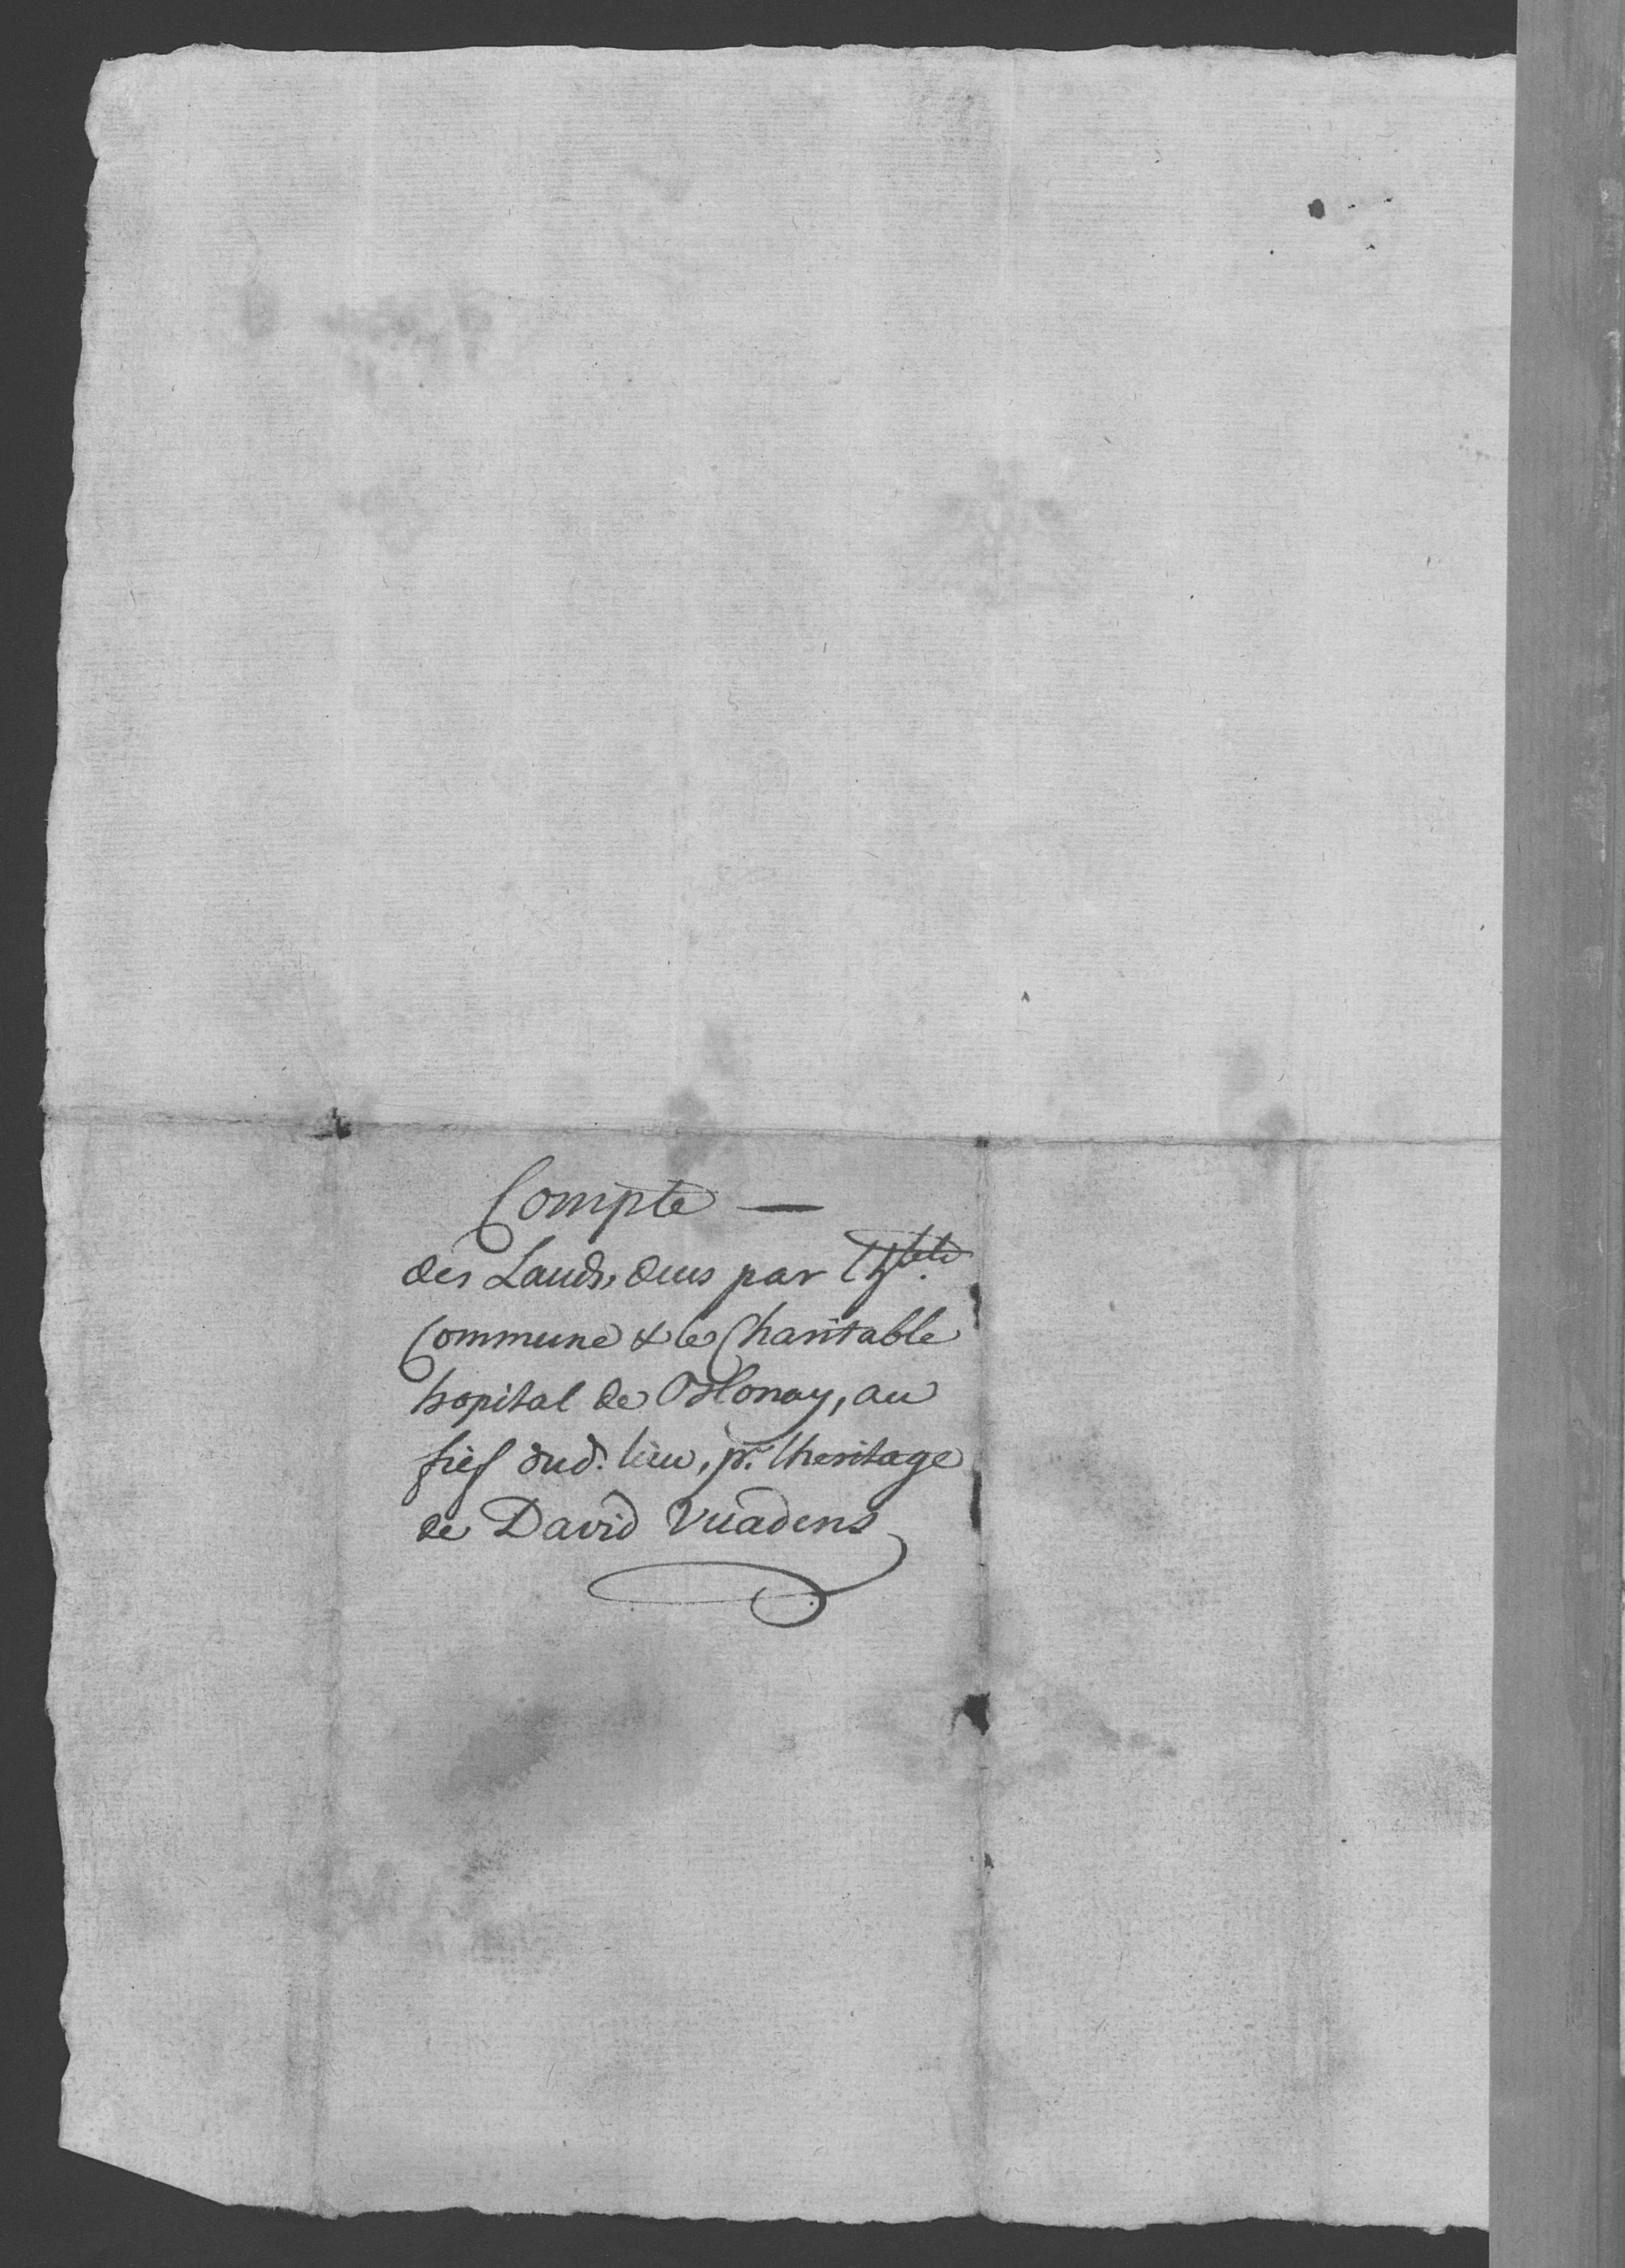 Compte —
des Lauds, deus par l'h.ble
Commune & le Charitable
hopital de Blonay, au
fief dud. lieu, pr. lheritage
de David Vuadens